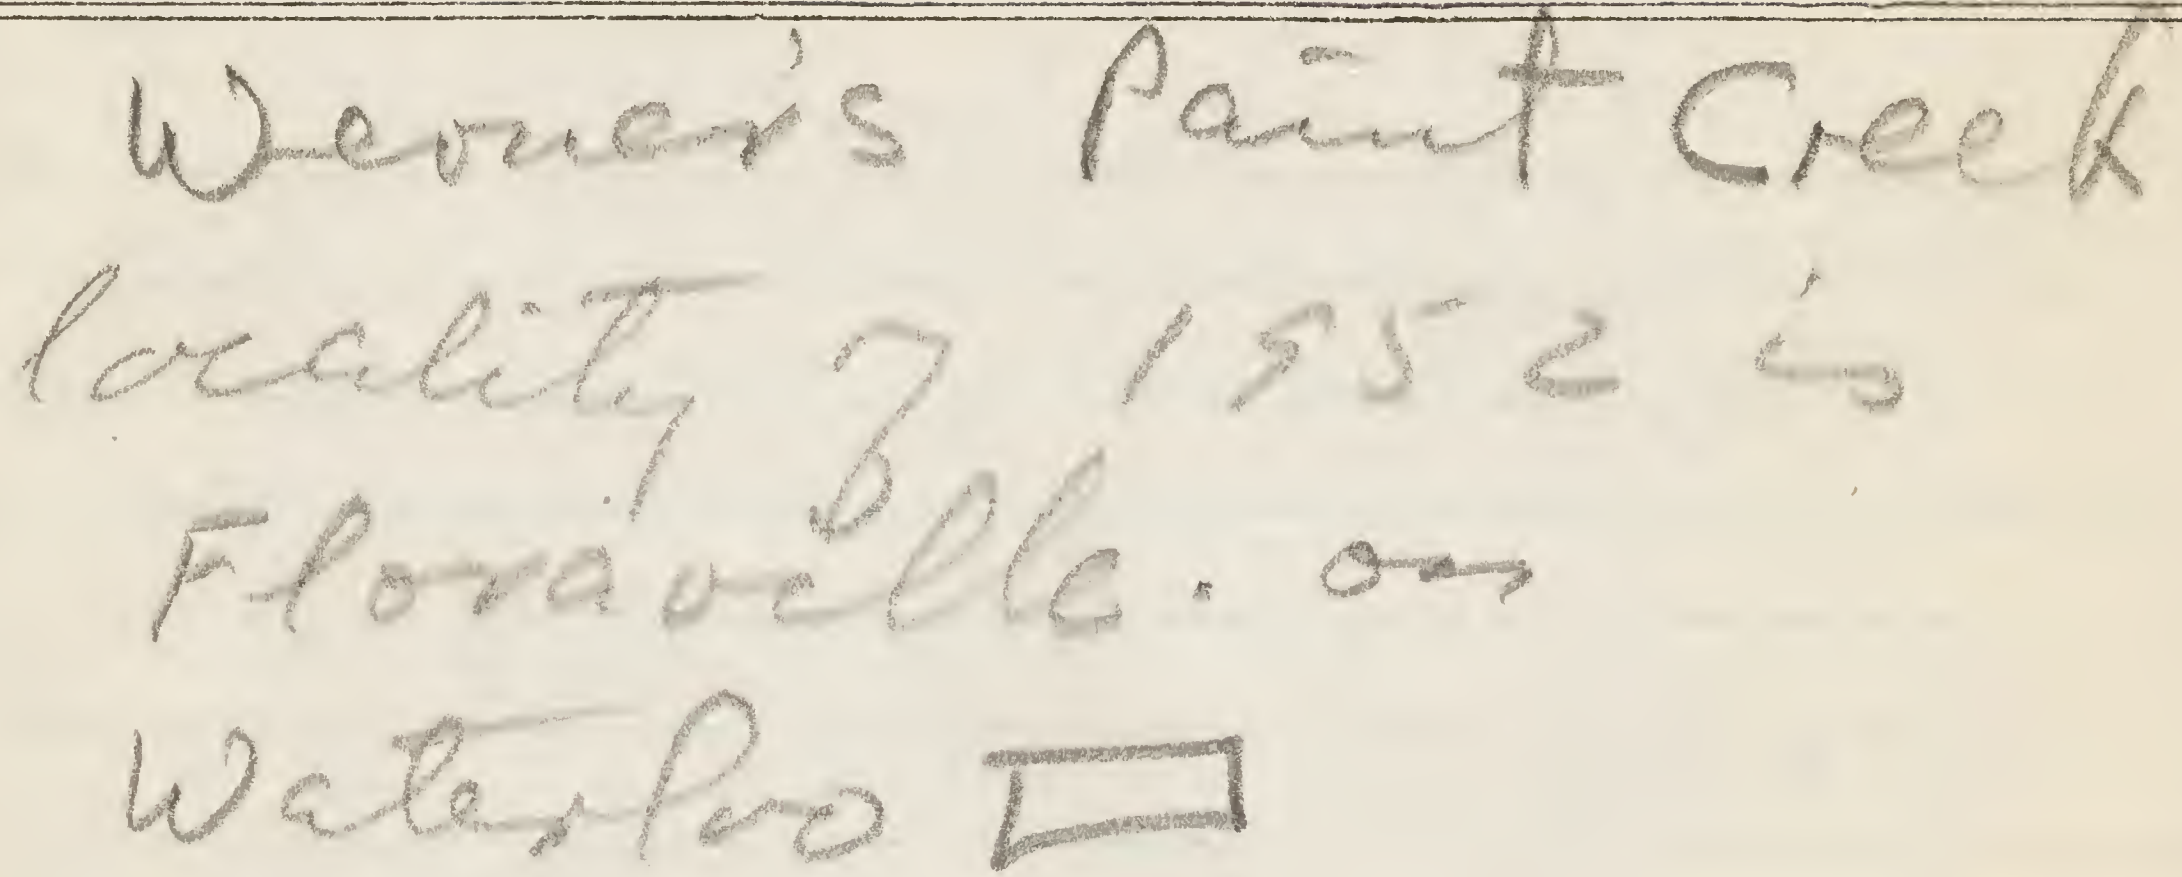 Werner's Paint Creek
locality of 1952 is
Floraville. on
Waterloo